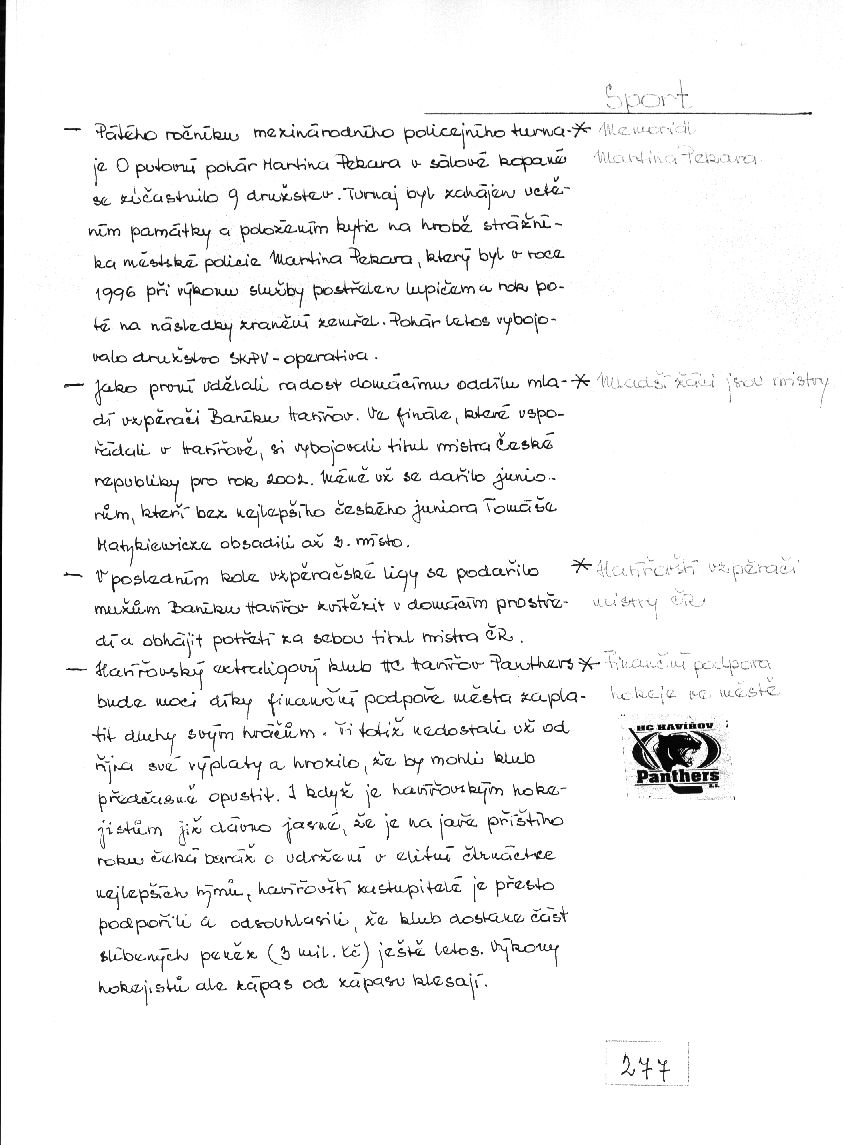 Sport
— Pátého ročníku mezinárodního policejního turna- * Memoriál
je O putovní pohár Martina Pekara v sálové kopané Martina Pekara
se zúčastnilo 9 družstev. Turnaj byl zahájen uctě-
ním památky a položením kytic na hrobě strážní-
ka městské policie Martina Pekara, který byl v roce
1996 při výkonu služby postřelen lupičem a rok po-
té na následky zranění zemřel. Pohár letos vybojo-
valo družstvo SKPV - operativa.
— Jako první udělali radost domácímu oddílu mla- * Mladší žáci jsou mistry
dí vzpěrači Baníku Havířov. Ve finále, které uspo-
řádali v Havířově, si vybojovali titul mistra České
republiky pro rok 2002. Méně už se dařilo junio-
rům, kteří bez nejlepšího českého juniora Tomáše
Matykiewicze obsadili až 3. místo.
— V posledním kole vzpěračské ligy se podařilo * Havířovští vzpěrači
mužům Baníku Havířov zvítězit v domácím prostře- mistry ČR
dí a obhájit potřetí za sebou titul mistra ČR.
— Havířovský extraligový klub HC Havířov Panthers * Finanční podpora
bude moci díky finanční podpoře města zapla- hokeje ve městě
tit dluhy svým hráčům. Ti totiž nedostali už od
října své výplaty a hrozilo, že by mohli klub
předčasně opustit. I když je havířovským hoke-
jistům již dávno jasné, že je na jaře příštího
roku čeká baráž o udržení v elitní čtrnáctce
nejlepších týmů, havířovští zastupitelé je přesto
podpořili a odsouhlasili, že klub dostane část
slíbených peněz (3 mil. Kč) ještě letos. Výkony
hokejistů ale zápas od zápasu klesají.
HC HAVÍŘOV
Panthers
277